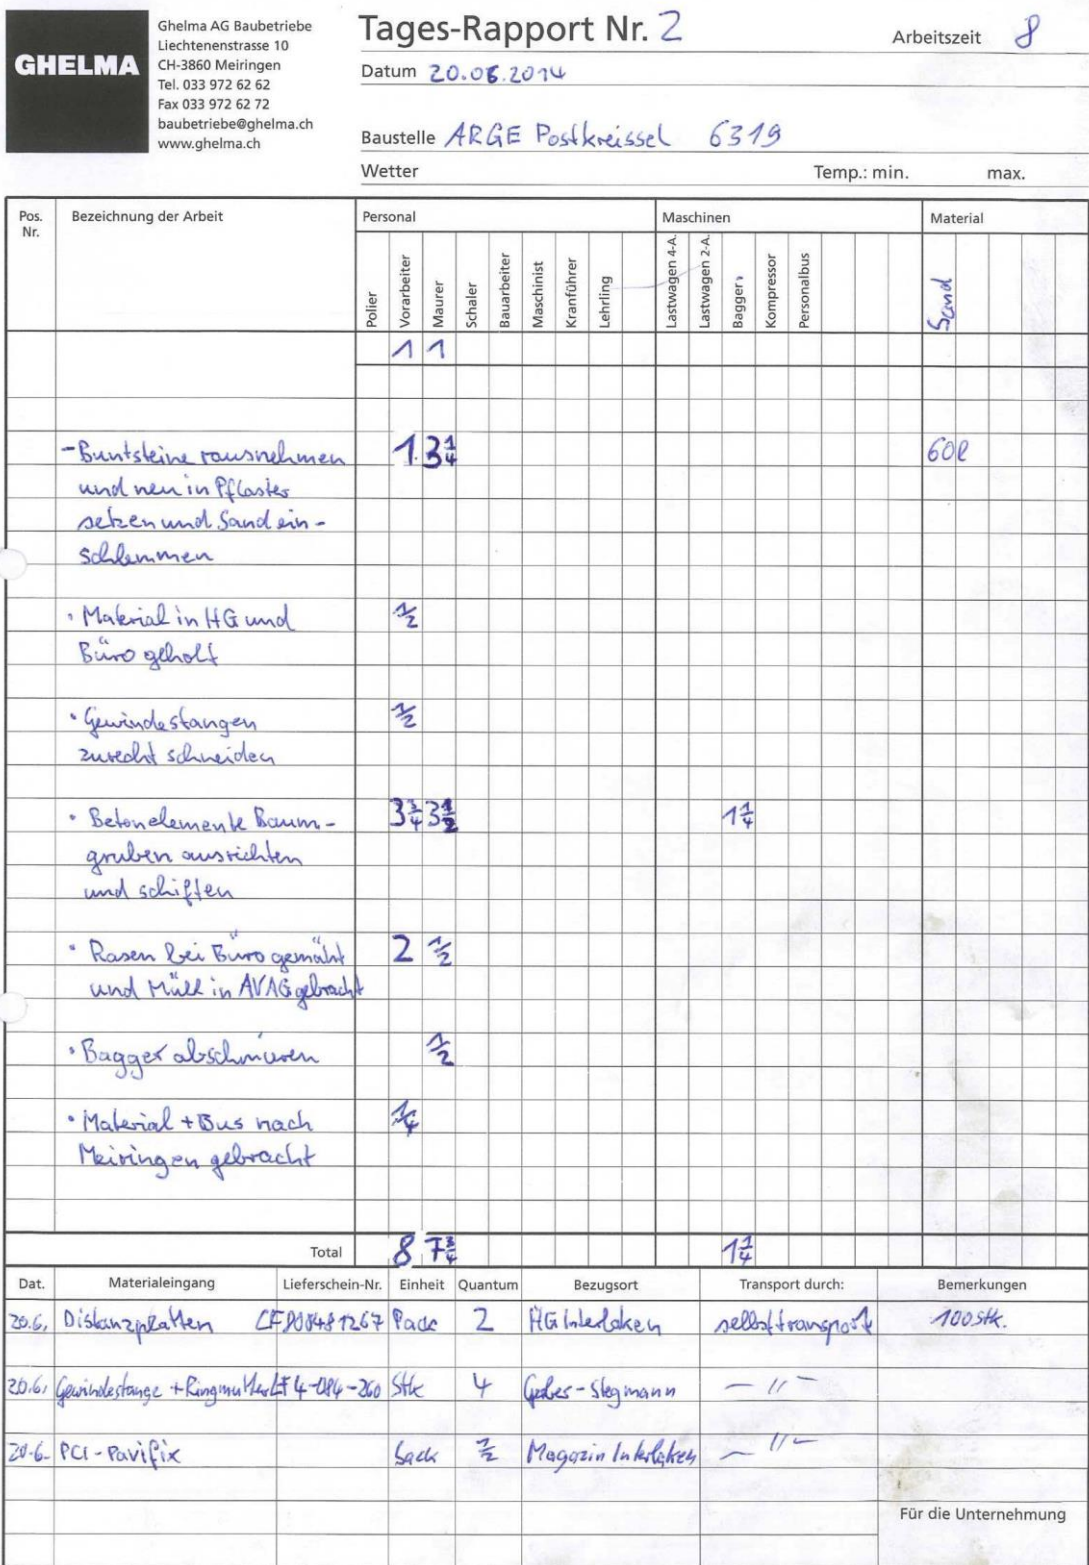 GHELMA
Ghelma AG Baubetriebe
Liechtenenstrasse 10
CH-3860 Meiringen
Tel. 033 972 62 62
Fax 033 972 62 72
baubetriebe@ghelma.ch
www.ghelma.ch
Tages-Rapport Nr. 2
Arbeitszeit 8
Datum 20.06.2014
Baustelle ARGE Postkreissel 6319
Wetter Temp.: min. max.
Pos. Nr. Bezeichnung der Arbeit Personal Maschinen Material
Polier Vorarbeiter Maurer Schaler Bauarbeiter Maschinist Kranführer Lehrling Lastwagen 4-A. Lastwagen 2-A. Bagger Kompressor Personalbus Sand
1 1
- Buntsteine rausnehmen 1 3 1/4 60l
und neu in Pflaster
setzen und Sand ein-
schlemmen
· Material in HG und 1/2
Büro geholt
· Gewindestangen 1/2
zurecht schneiden
· Betonelemente Baum- 3 3/4 3 1/2 1 1/4
gruben ausrichten
und schiften
· Rasen bei Büro gemäht 2 1/2
und Müll in AVAG gebracht
· Bagger abschmieren 1/2
· Material + Bus nach 1/4
Meiringen gebracht
Total 8 7 3/4 1 1/4
Dat. Materialeingang Lieferschein-Nr. Einheit Quantum Bezugsort Transport durch: Bemerkungen
20.6. Distanzplatten Pack 2 HG Interlaken selbsttransport 100 Stk.
20.6. Gewindestange + Ringmutter 4-084-260 Stk 4 -Stegmann - " -
20.6. PCI-Pavifix Sack 1/2 Magazin Interlaken - " -
Für die Unternehmung